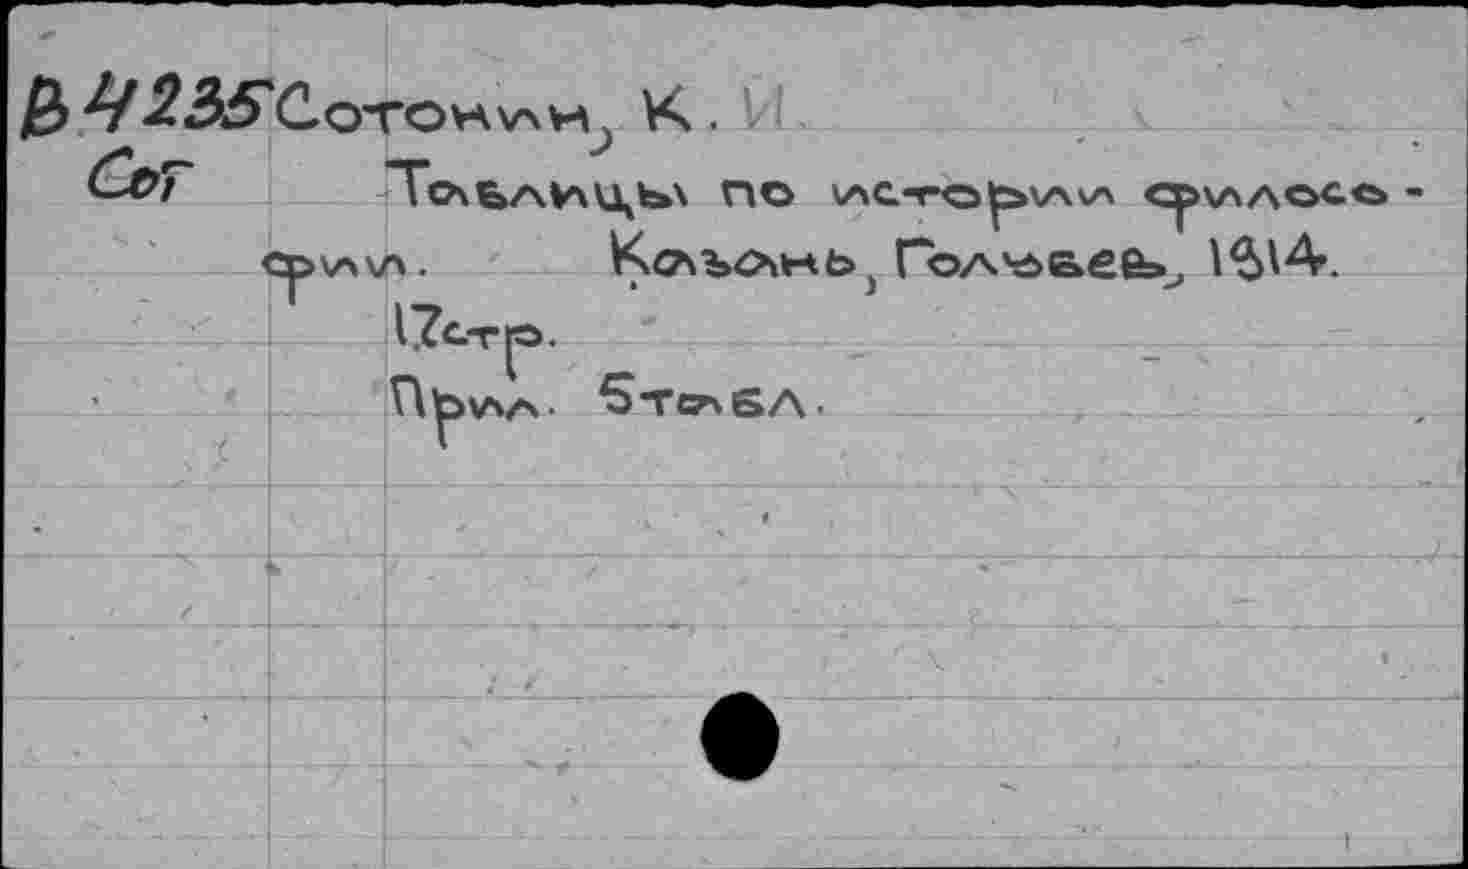 В 4235 Сотонин, К. И.
Сот Таблицы по истории филосо-
фии. Казань, Голубев, 1914.
17стр.
Прил. 5табл.